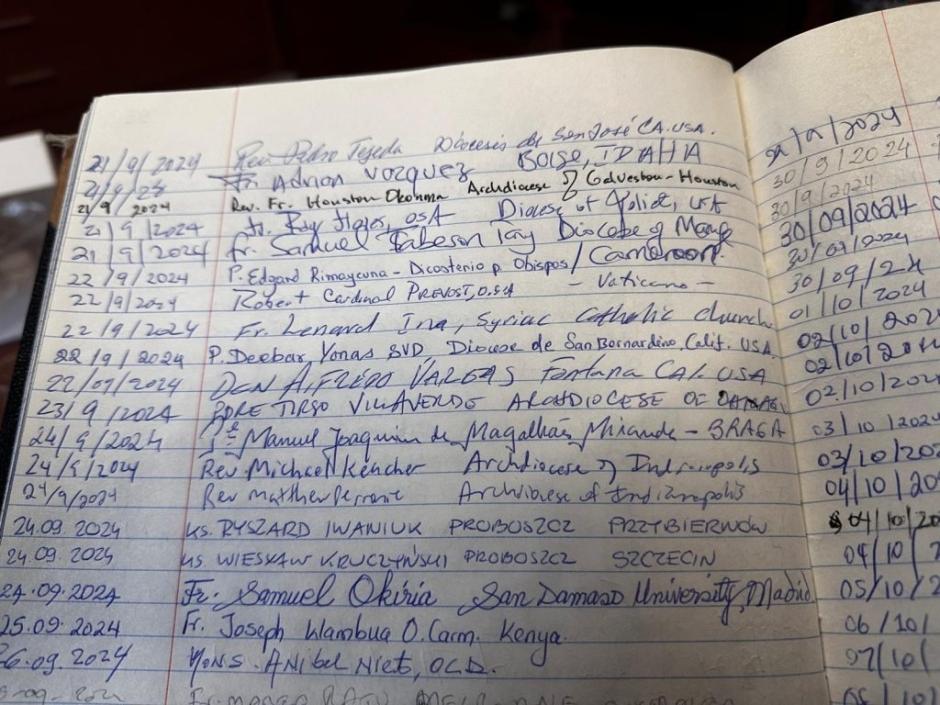 21/9/2024 Rev. Pedro Tejeda Diócesis de San José CA. USA.
21/9/23 Fr. Adrian Vazquez BOISE, IDAHA
21/9 2024 Rev. Fr. Houston Okonma Archdiocese of Galveston-Houston
21/9/2024 Fr. Ray Flores, OSA Diocese of Joliet, USA
21/9/2024 Fr. Samuel Diocese of
22/9/2024 P. Edgard Rimaycuna - Dicasterio p Obispos/Cameroon.
22/9/2024 Robert Cardinal PREVOST, O.S.A - Vaticano -
22/9/2024 Fr. Lenard Ina, Syriac Catholic church
22/9/2024 P. Deebar Yonas SVD Diocese de San Bernardino, Calif. USA.
22/09/2024 DON ALFREDO VARGAS Fontana CAL USA
23/9/2024 PDRE TIRSO VILLAVERDE ARCHDIOCESE OF
24/9/2024 Pe Manuel Joaquim de Magalhães Miranda - BRAGA
24/9/2024 Rev. Michael Keucher Archdiocese of Indianapolis
24/9/2024 Rev Matthew Perronie Archdiocese of Indianapolis
24.09.2024 KS. RYSZARD IWANIUK PROBOSZCZ PRZYBIERNÓW
24.09.2024 KS WIESŁAW KRUCZYŃSKI PROBOSZCZ SZCZECIN
24.09.2024 Fr. Samuel Okiria San Damaso University, Madrid
25.09.2024 Fr. Joseph Wambua O.Carm. Kenya.
26.09.2024 MONS. ANIBAL NIETO, OCD.
30/9/2024
30/9/2024
30/09/2024
30/09/2024
30/09/24
01/10/2024
02/10/202
02/10/2024
02/10/2024
03/10/2024
03/10/202
04/10/20
04/10/20
04/10/2
05/10/2
06/10/
07/10/